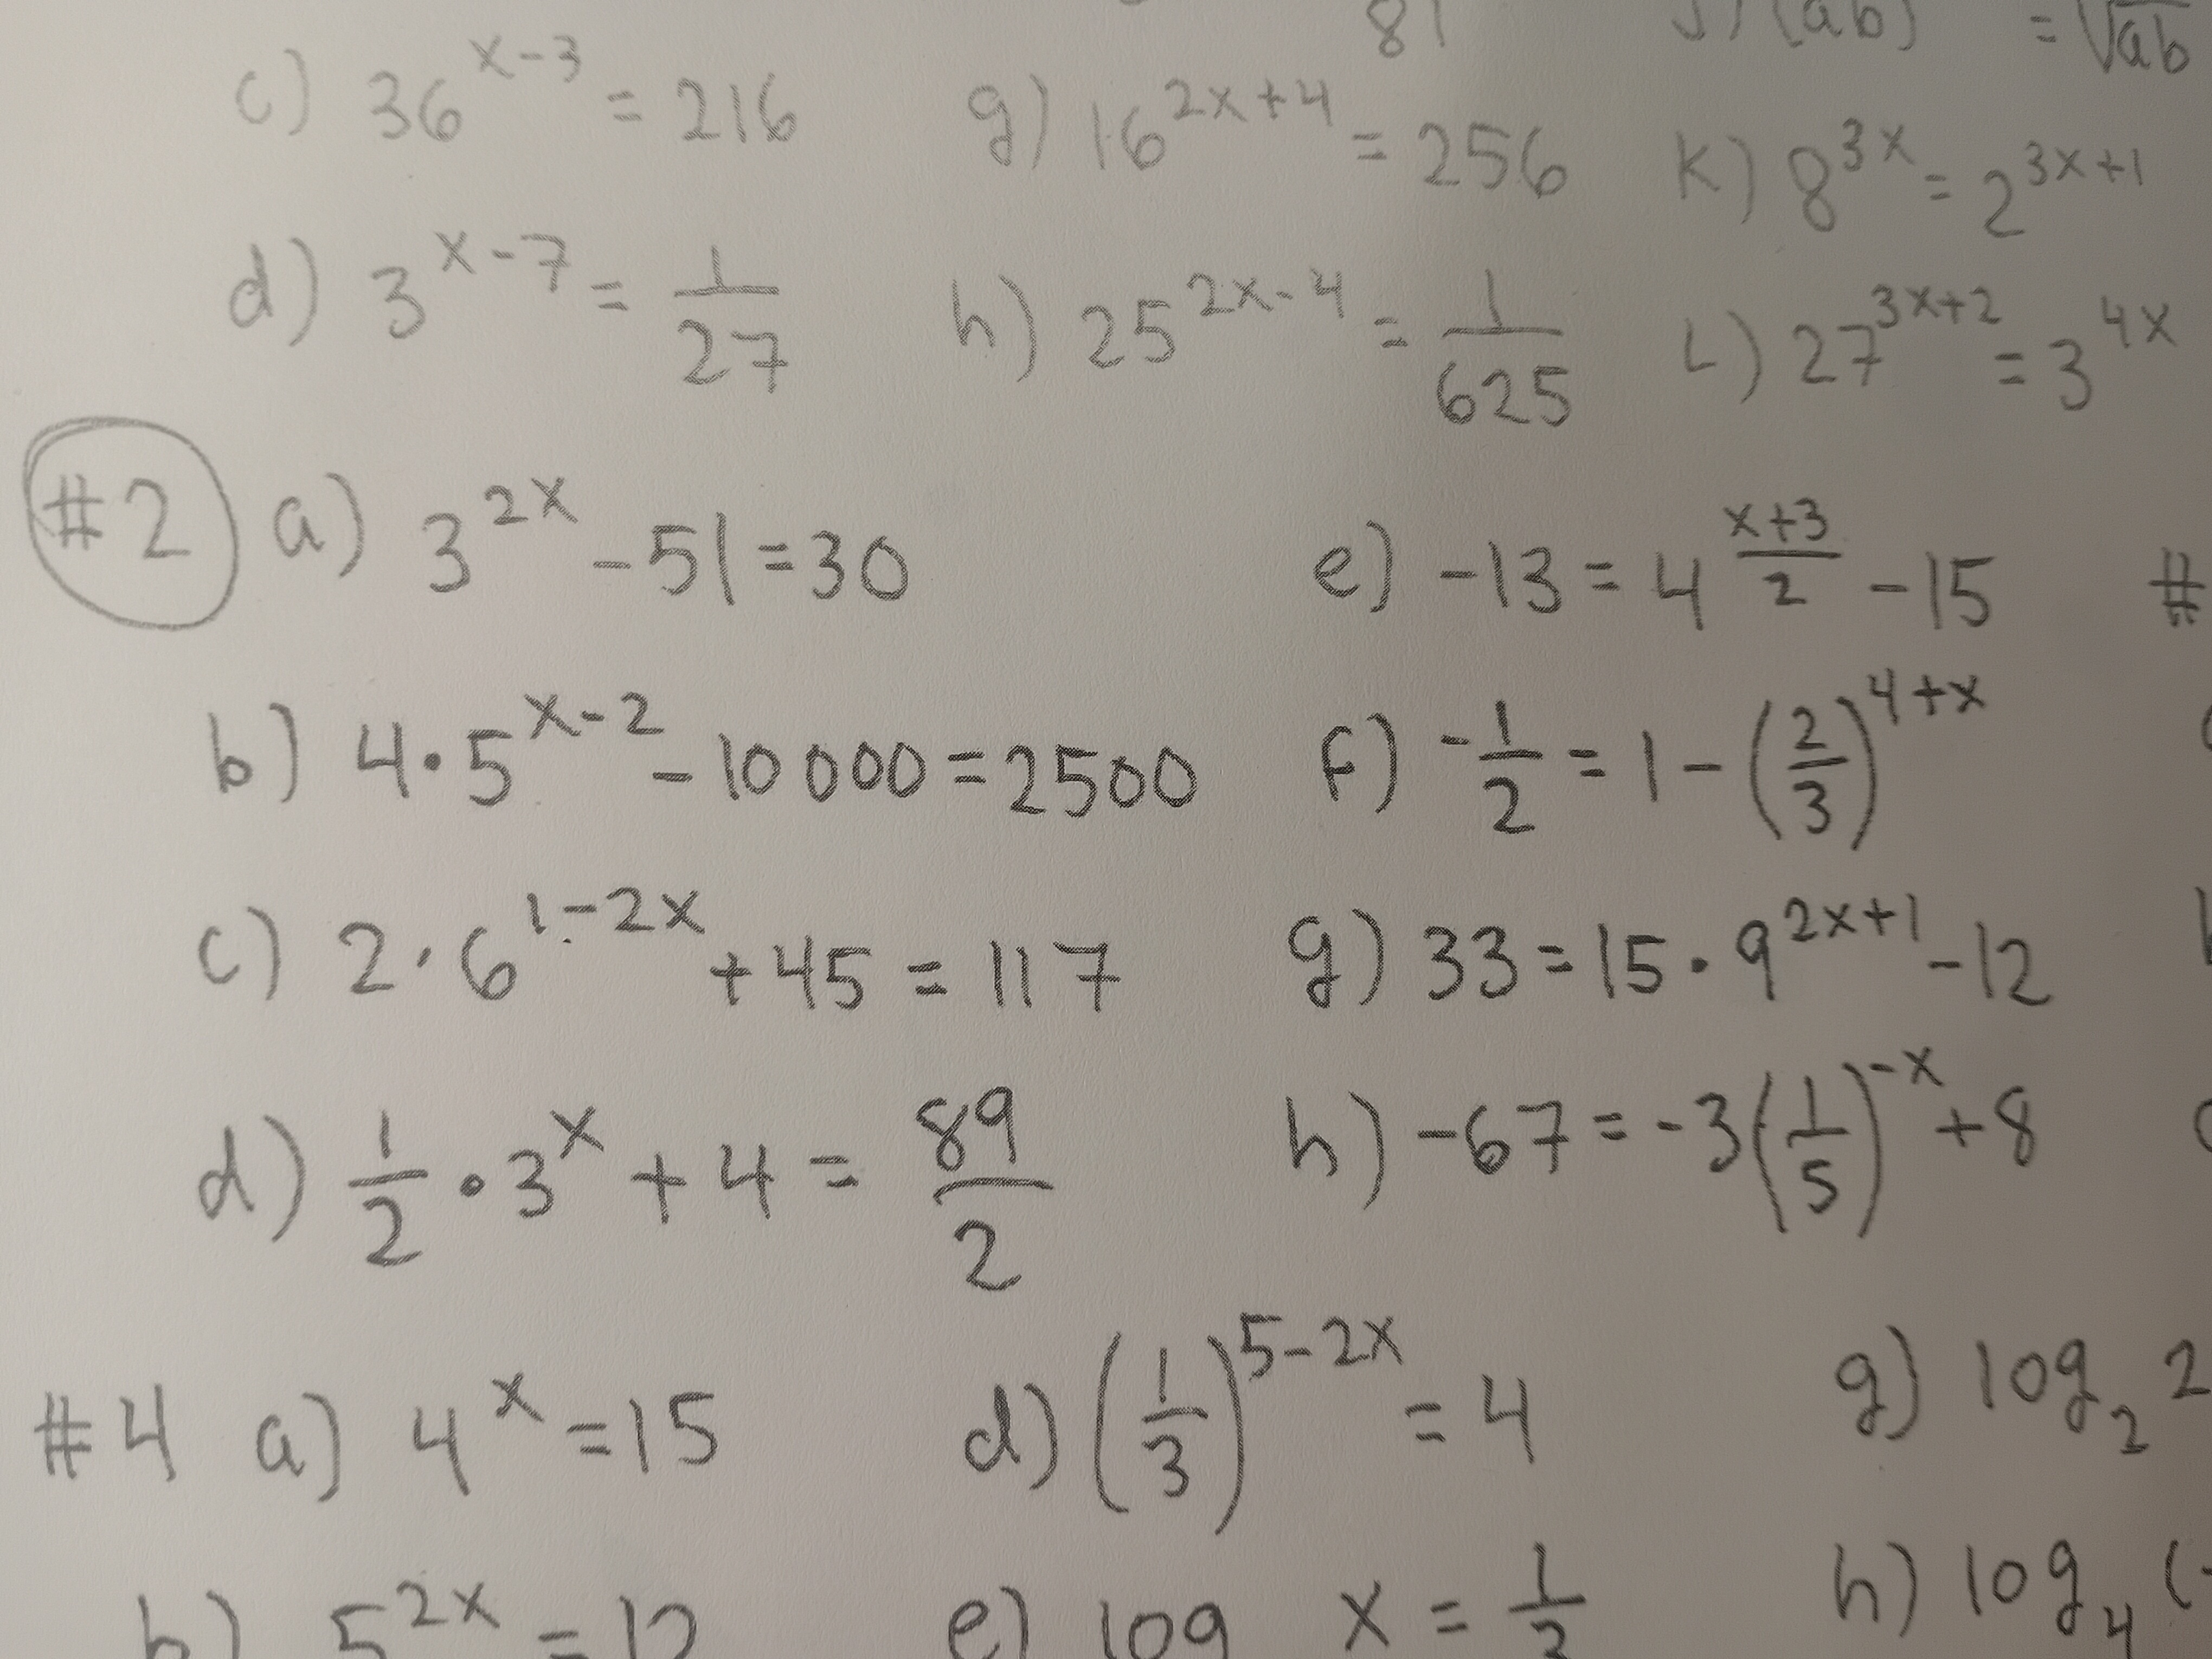 81 j) (ab) = √ab
c) 36^(x-3) = 216 g) 16^(2x+4) = 256 K) 8^(3x) = 2^(3x+1)
d) 3^(x-7) = 1/27 h) 25^(2x-4) = 1/625 L) 27^(3x+2) = 3^(4x)
#2 a) 3^(2x) - 51 = 30 e) -13 = 4^((x+3)/2) - 15 #
b) 4·5^(x-2) - 10 000 = 2500 F) -1/2 = 1 - (2/3)^(4+x)
c) 2·6^(1-2x) + 45 = 117 g) 33 = 15·9^(2x+1) - 12
d) 1/2·3^x + 4 = 89/2 h) -67 = -3(1/5)^(-x) + 8
#4 a) 4^x = 15 d) (1/3)^(5-2x) = 4 g) log₂ 2
b) 5^(2x) = 12 e) log x = 1/3 h) log₄ (